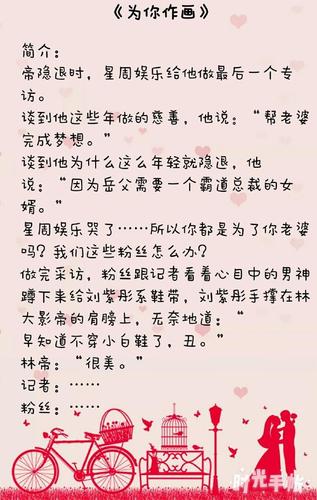 《为你作画》
简介：
帝隐退时，星周娱乐给他做最后一个专
访。
谈到他这些年做的慈善，他说：“帮老婆
完成梦想。”
谈到他为什么这么年轻就隐退，他
说：“因为岳父需要一个霸道总裁的女
婿。”
星周娱乐哭了……所以你都是为了你老婆
吗？我们这些粉丝怎么办？
做完采访，粉丝跟记者看着心目中的男神
蹲下来给刘紫彤系鞋带，刘紫彤手撑在林
大影帝的肩膀上，无奈地道：“
早知道不穿小白鞋了，丑。”
林帝：“很美。”
记者：……
粉丝：……
时光手帐